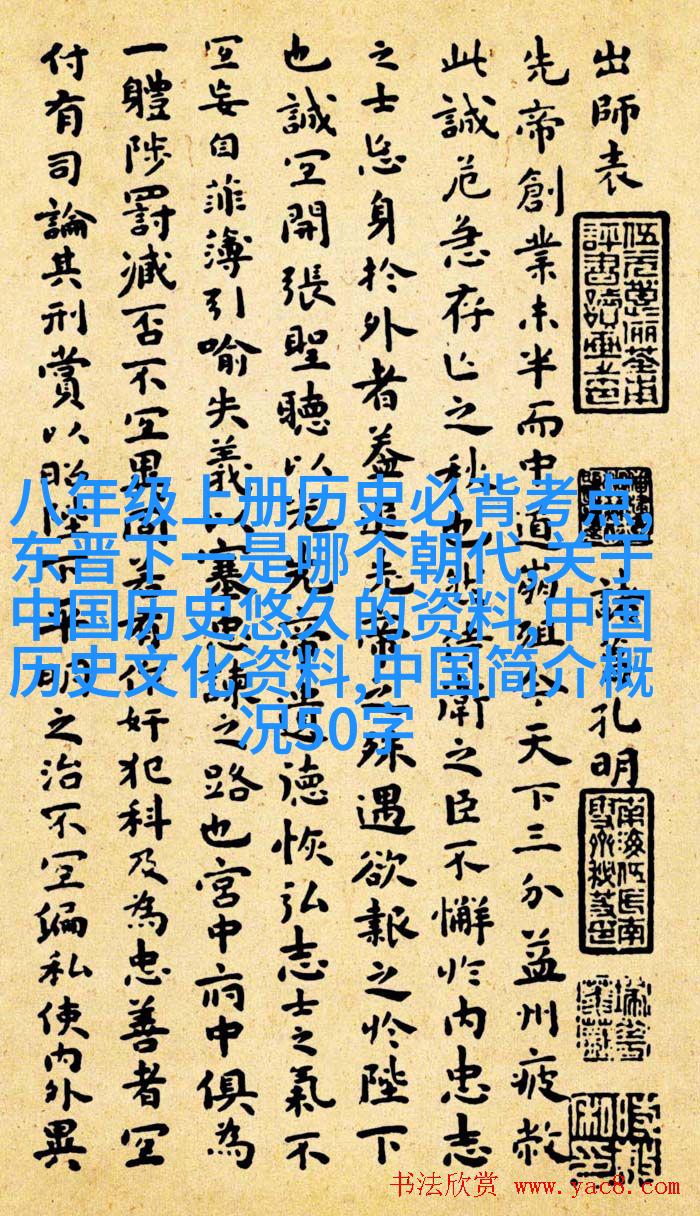 出師表
孔明
先帝創業未半而中道崩殂今天下三分益州疲敝
此誠危急存亡之秋也然侍衛之臣不懈於内忠志
之士忘身於外者蓋追先帝之殊遇欲報之於陛下
也誠宜開張聖聽以光先帝遺德恢弘志士之氣不
宜妄自菲薄引喻失義以塞忠諫之路也宮中府中俱為
一體陟罰臧否不宜異同若有作奸犯科及為忠善者宜
付有司論其刑賞以昭陛下平明之治不宜偏私使内外異
八年级上册历史必背考点,
东晋下一是哪个朝代,关于
中国历史悠久的资料,中国
历史文化资料,中国简介概
况50字
书法欣赏 www.yac8.com